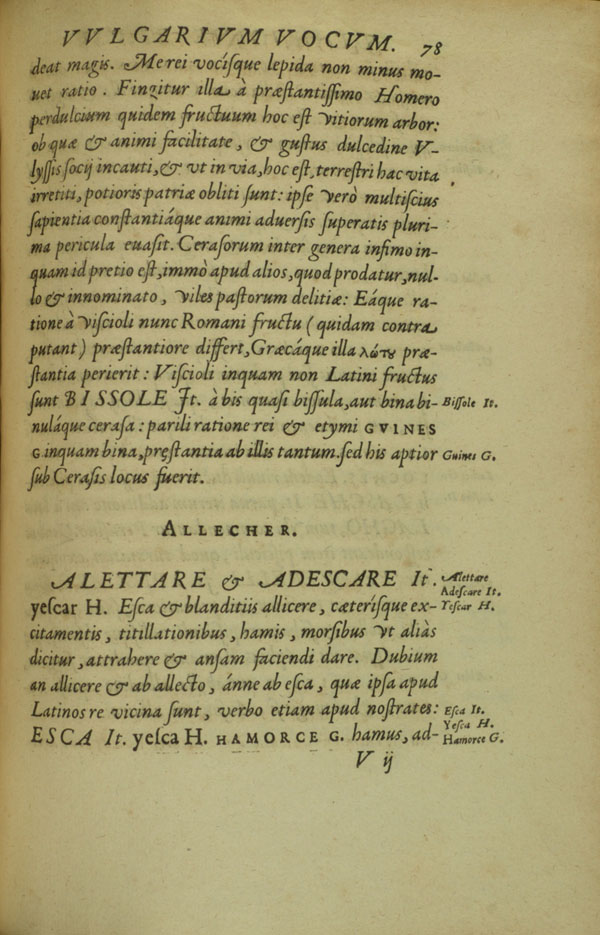 VVLGARIVM VOCVM. 78
deat magis. Me rei vocísque lepida non minus mo-
uet ratio. Fingitur illa à præstantissimo Homero
perdulcium quidem fructuum hoc est vitiorum arbor:
ob quæ & animi facilitate, & gustus dulcedine V-
lyssis socij incauti, & vt in via, hoc est, terrestri hac vita
irretiti, potioris patriæ obliti sunt: ipse verò multiscius
sapientia constantiáque animi aduersis superatis pluri-
ma pericula euasit. Cerasorum inter genera infimo in-
quam id pretio est, immò apud alios, quod prodatur, nul-
lo & innominato, viles pastorum delitiæ: Eáque ra-
tione à viscioli nunc Romani fructu (quidam contra
putant) præstantiore differt, Græcáque illa λώτȣ præ-
stantia perierit: Viscioli inquam non Latini fructus
sunt BISSOLE It. à bis quasi bissula, aut bina bi- Bissole It.
nuláque cerasa: parili ratione rei & etymi GVINES
G inquam bina, pręstantia ab illis tantum. sed his aptior Guines G.
sub Cerasis locus fuerit.
ALLECHER.
ALETTARE & ADESCARE It. Alettare
Adescare It.
yescar H. Esca & blanditiis allicere, cæterísque ex- Yescar H.
citamentis, titillationibus, hamis, morsibus vt aliàs
dicitur, attrahere & ansam faciendi dare. Dubium
an allicere & ab allecto, ánne ab esca, quæ ipsa apud
Latinos re vicina sunt, verbo etiam apud nostrates: Esca It.
Yesca H.
ESCA It. yesca H. HAMORCE G. hamus, ad- Hamorce G.
V ij